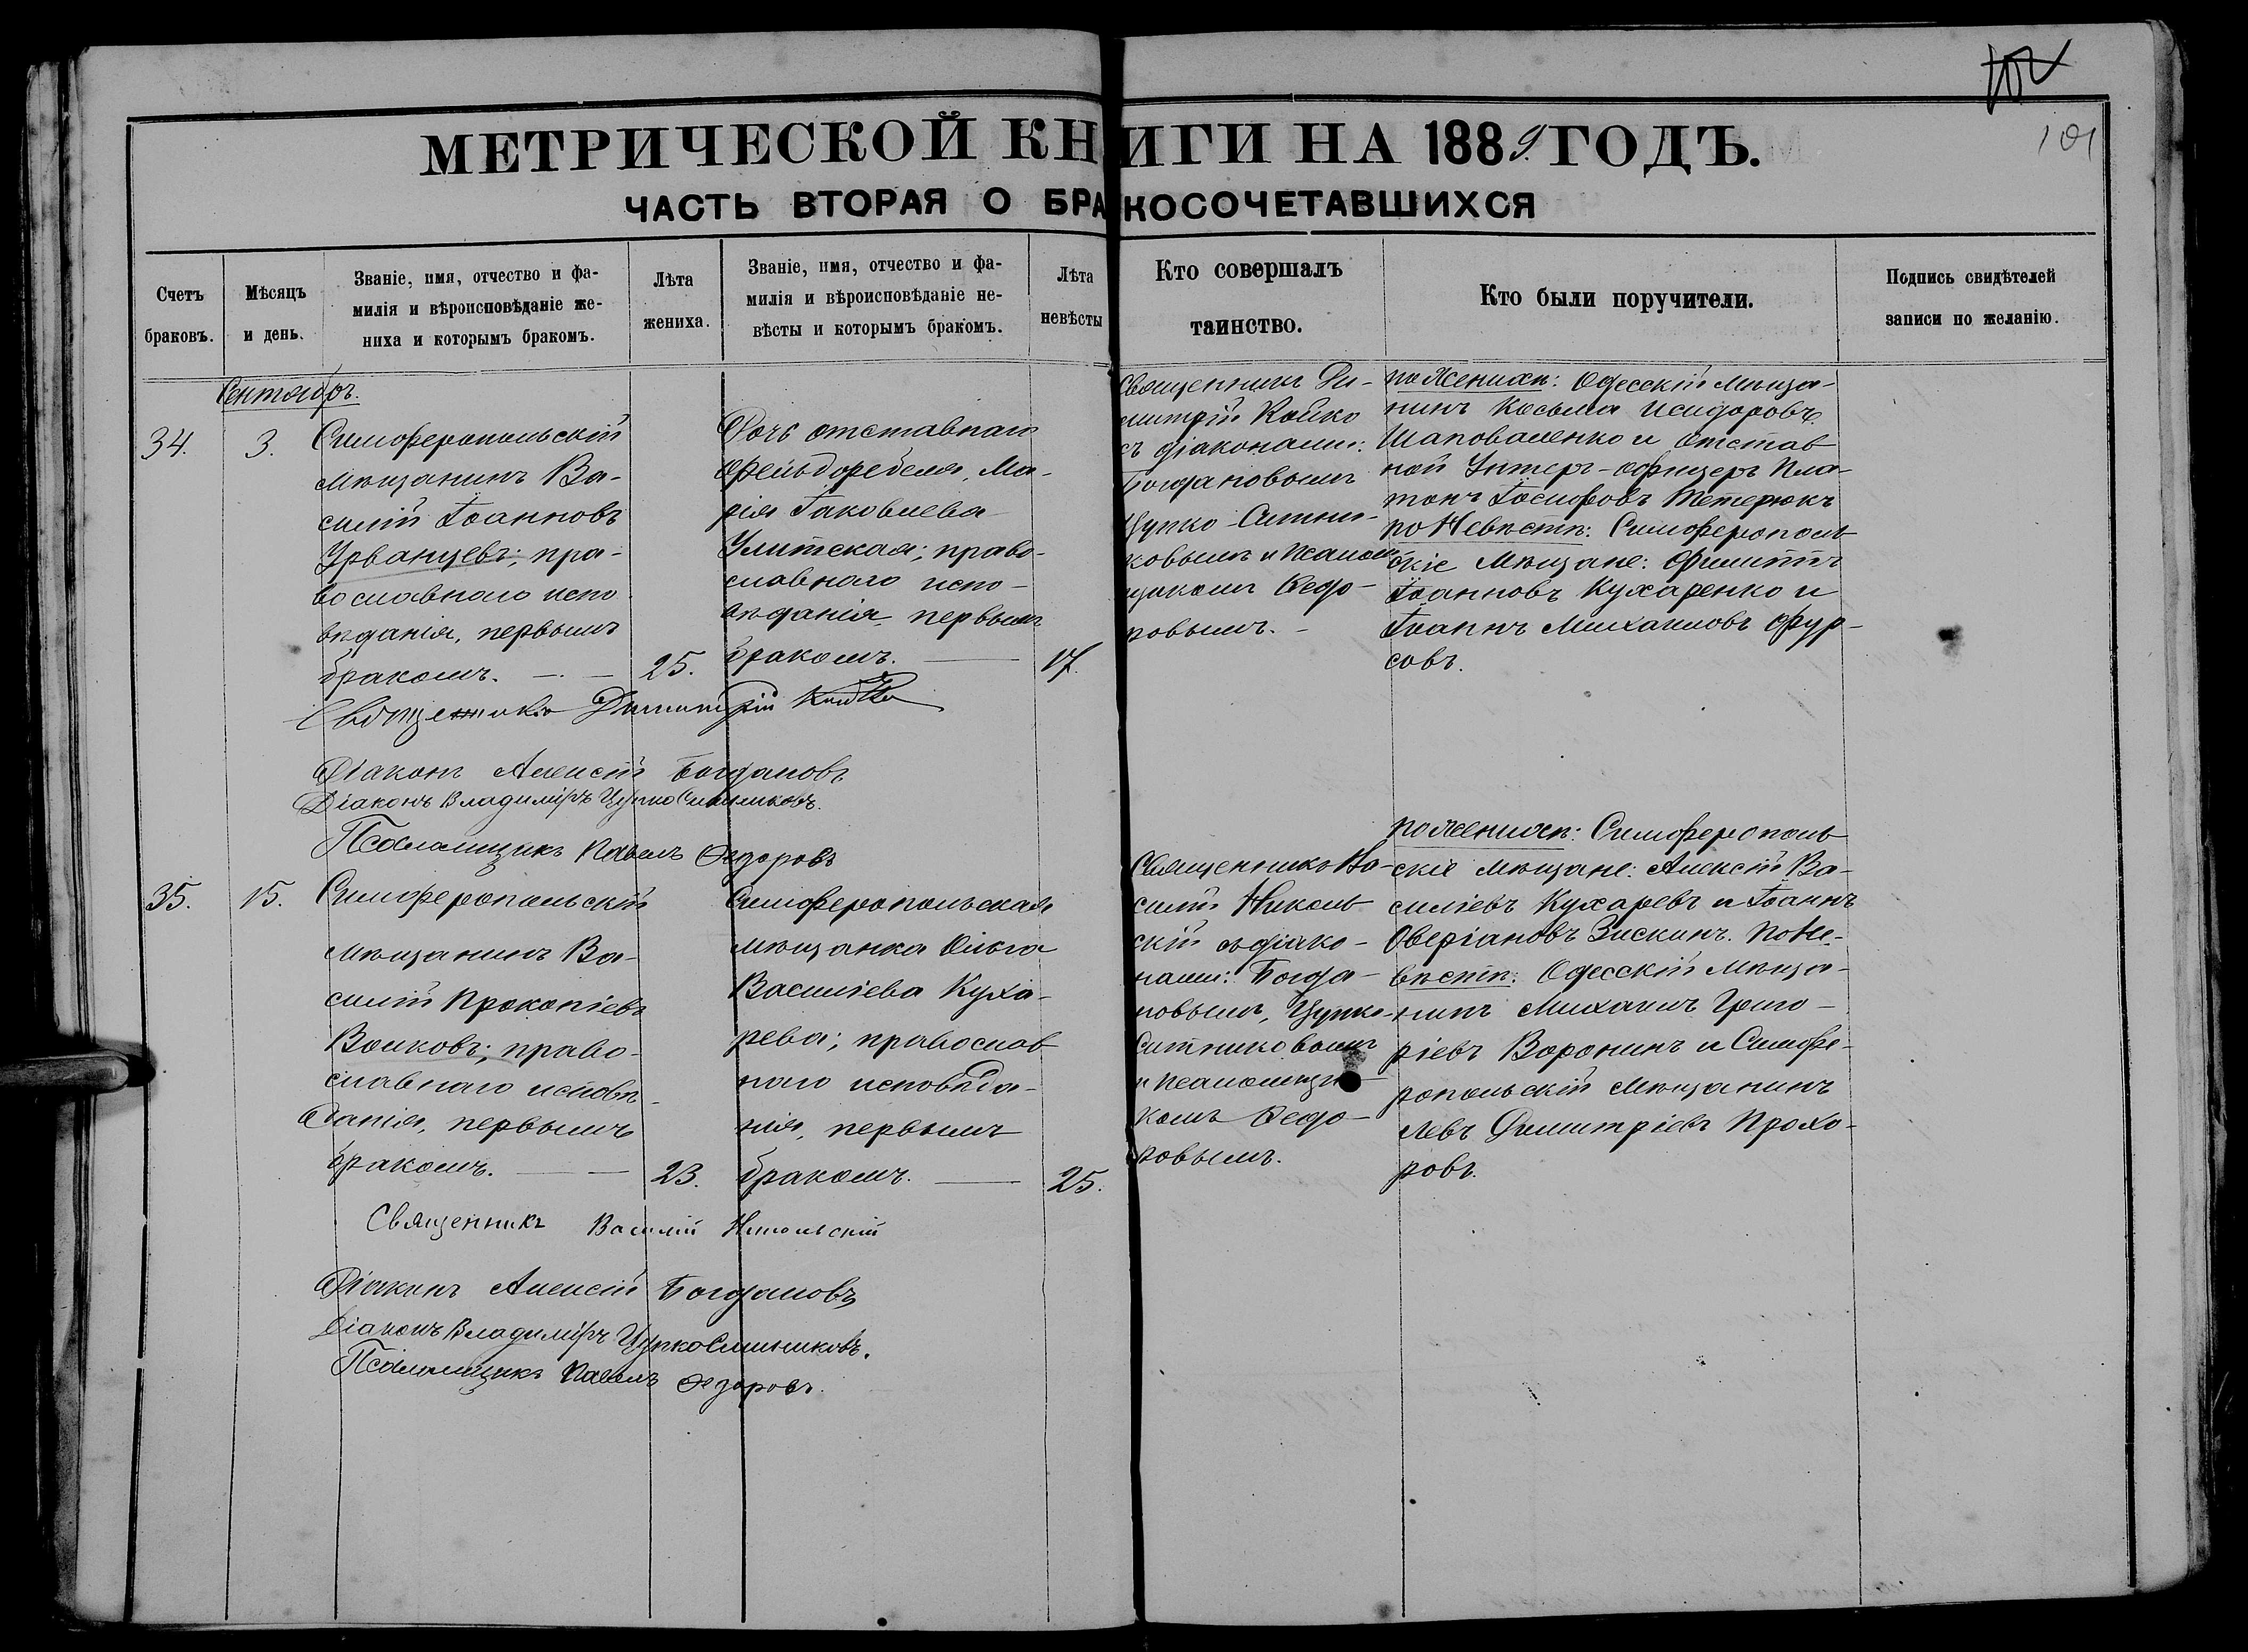 101
МЕТРИЧЕСКОЙ КНИГИ НА 1889 ГОДЪ.
ЧАСТЬ ВТОРАЯ О БРАКОСОЧЕТАВШИХСЯ
Счетъ
браковъ.
Мѣсяцъ
и день.
Званіе, имя, отчество и фа-
милія и вѣроисповѣданіе же-
ниха и которымъ бракомъ.
Лѣта
жениха.
Званіе, имя, отчество и фа-
милія и вѣроисповѣданіе не-
вѣсты и которымъ бракомъ.
Лѣта
невѣсты
Кто совершалъ
таинство.
Кто были поручители.
Подпись свидѣтелей
записи по желанію.
Сентябрь.
34.
3.
Симферопольскій
мѣщанинъ Ва-
силій Іоанновъ
Урванцевъ; пра-
вославнаго испо
вѣданія, первымъ
бракомъ.
25.
Дочь отставнаго
фельдфебеля, Ма-
рія Іаковлева
Улитская; право-
славнаго испо-
вѣданія, первымъ
бракомъ.
17.
Священникъ Ди-
митрій Койко
съ діаконами:
Богдановымъ
Цупко-Ситни-
ковымъ и Псалом
щикомъ Ѳедо-
ровымъ.
По Женихѣ: Одесскій мѣща-
нинъ Косьма Исидоровъ
Шаповаленко и отстав
ной Унтеръ-офицеръ Пла-
тонъ Іосифовъ Тетерюкъ
по Невѣстѣ: Симферополь
скіе Мѣщане: Филиппъ
Іоанновъ Кухаренко и
Іоаннъ Михаиловъ Фур-
совъ.
Священникъ Димитрій Койко
Діаконъ Алексій Богдановъ
Діаконъ Владиміръ Цупко Ситниковъ.
Псаломщикъ Павелъ Ѳедоровъ
35.
15.
Симферопольскій
мѣщанинъ Ва-
силій Прокопіевъ
Волковъ; право-
славнаго исповѣ-
данія, первымъ
бракомъ.
23.
Симферопольская
мѣщанка Ольга
Василіева Куха-
рева; православ
наго исповѣда-
нія, первымъ
бракомъ.
25.
Священникъ Ва-
силій Николь
скій съ діако-
нами: Богда-
новымъ, Цупко-
Ситниковымъ
и псаломщи
комъ Ѳедо-
ровымъ.
по Женихѣ: Симферополь
скіе мѣщане: Алексій Ва-
силіевъ Кухаревъ и Іоаннъ
Оверіановъ Зискинъ. По Не-
вѣстѣ: Одесскій Мѣща-
нинъ Михаилъ Григо-
ріевъ Воронинъ и Симфе-
ропольскій Мѣщанинъ
Левъ Димитріевъ Прохо-
ровъ.
Священникъ Василій Никольскій
Діаконъ Алексій Богдановъ
Діаконъ Владиміръ Цупко Ситниковъ.
Псаломщикъ Павелъ Ѳедоровъ.